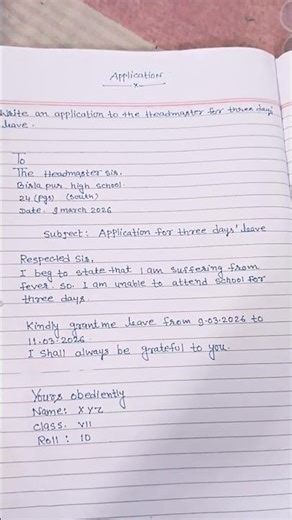 Application
x
Write an application to the Headmaster for three days'
leave.
To
The Headmaster sir,
Birla pur high school
24 (pgs) (South)
Date. 9 march 2026
Subject: Application for three days' leave
Respected Sir,
I beg to state that I am suffering from
fever. so I am unable to attend school for
three days.
Kindly grant me leave from 9-03-2026 to
11-03-2026.
I shall always be grateful to you.
Yours obediently
Name: X.Y.Z
Class. VII
Roll : 10